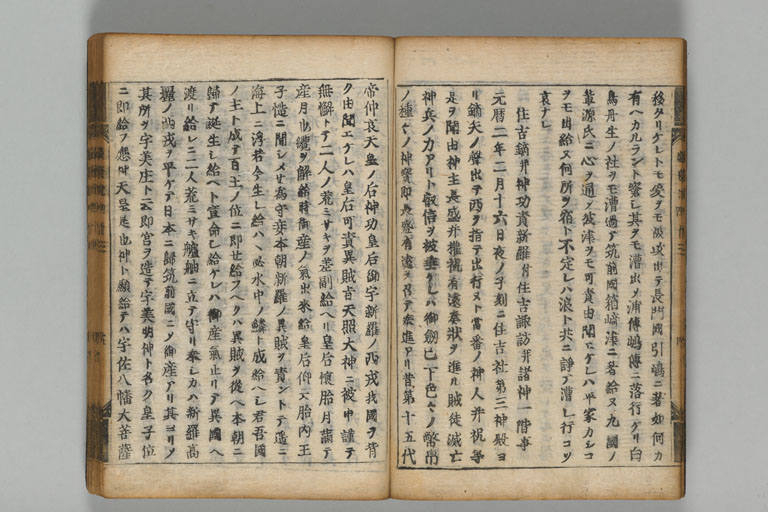 後タリケレトモ爰ヲモ被攻出テ長門國引嶋ニ著如何カ
有ヘカルラント寮シ其ヲモ漕出メ浦傳嶋傳ニ落行クリ白
鳥丹生ノ社ヲモ漕過テ筑前國箱崎湊ニ著給ヌ九國ノ
輩源氏ニ心ヲ通メ彼湊ヲモ可責由聞エケレハ平家カシコ
ヲモ出給ヌ何所ヲ宿ト不定レハ浪ト共ニ諍テ漕レ行コソ
哀ナレ
住吉鏑并神功責新羅付住吉諏訪并諸神一階事
元暦二年二月十六日夜ノ子刻ニ住吉社第三神殿ヨ
リ鏑矢ノ聲出テ西ヲ指テ出行ヌト當番ノ神人并祝等
是ヲ聞由神主長盛并權祝有遠奉狀ヲ進ル賊徒滅亡
神兵ノ力アリト叡信ヲ被垂ケレハ御劔已下色々ノ幣帛
ノ種々ノ神寶即長盛有遠ヲ召テ奉進アリ昔第十五代
帝仲哀天皇ノ后神功皇后御宇新羅ノ西戎我國ヲ背
ク由聞エケレハ皇后可責異賊旨天照大神ニ被申謹テ
無懈トテ二人ノ荒ミサキヲ差副給ヘリ皇后懷胎月滿テ
産月也纜ヲ解給時御産ノ氣出來給皇后仰云胎内王
子慥ニ聞シメセ為守妾本朝新羅ノ異賊ヲ責ントテ遥ニ
海上ニ浮若今生レ給ハヽ必水中ノ鱗ト成給ヘシ君吾國
ノ主ト成テ百王ノ位ニ即世給フヘクハ異賊ヲ從ヘ本朝ニ
歸テ誕生シ給ヘト宣命シ給ケレハ御産氣止リテ異國ヘ
渡リ給シニ二人荒ミサキ艫舳ニ立テ守リ奉シカハ新羅高
麗ノ西戎ヲ平ケテ日本ニ歸筑前國ニメ御産アリ其ヨリノ
其所ヲ宇美庄ト云即宮ヲ造テ宇美明神ト名ク皇子位
ニ即給フ應神天皇是也神ト顯給テハ宇佐八幡大菩薩